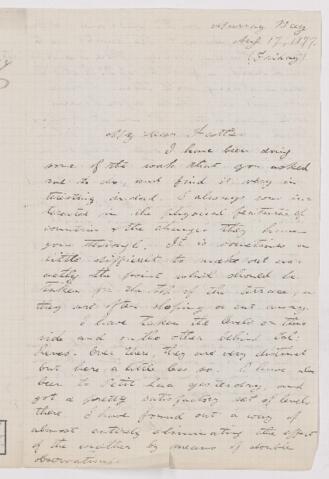 Murray Bay
Aug 17, 1877.
(Friday)
My dear Father
I have been doing
some of the work that you asked
me to do, and find it very in-
teresting indeed. I always was in-
terested in the physical features of
countries & the changes they have
gone through. It is sometimes a
little difficult to make out ex-
actly the point which should be
taken for the top of the terrace, as
they are often sloping or cut away.
I have taken the levels on this
side and on the other behind
Over there, they are very distinct
but here a little less so. I have also
been to Petit Lac yesterday, and
got a pretty satisfactory set of levels
there. I have found out a way of
almost entirely eliminating the effect
of the weather by means of double
observations.